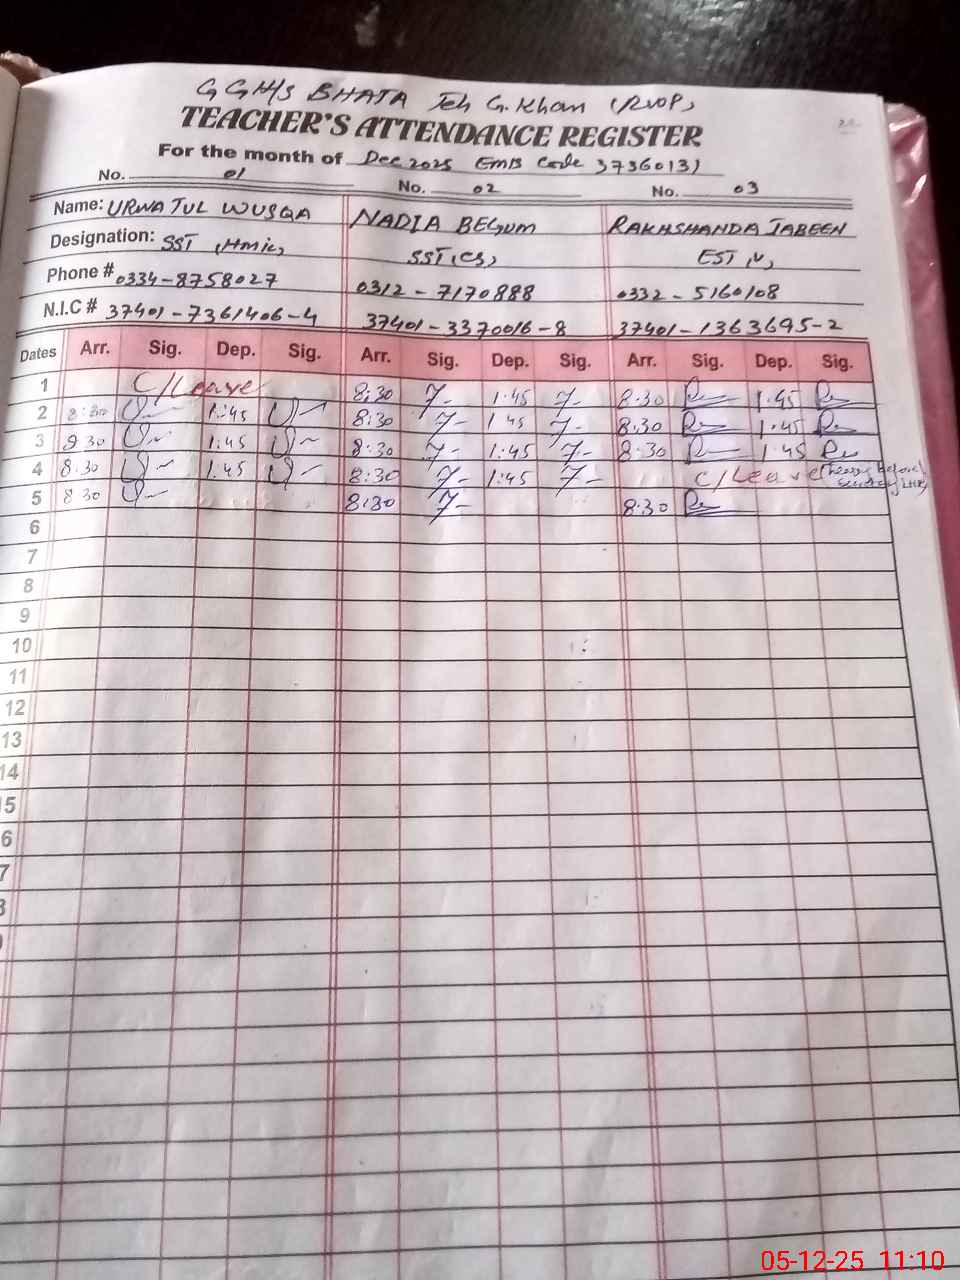 GGH/S BHATA Teh G. Khan (RWP)
TEACHER'S ATTENDANCE REGISTER
For the month of Dec 2025 EMIS Code 37360131
No. 01 No. 02 No. 03
Name: URWA TUL WUSQA NADIA BEGUM RAKHSHANDA JABEEN
Designation: SST (Hmic) SST (CS) EST
Phone # 0334-8758027 0312-7170888 0332-5160108
N.I.C # 37401-7361406-4 37401-3370016-8 37401-1363695-2
Dates Arr. Sig. Dep. Sig. Arr. Sig. Dep. Sig. Arr. Sig. Dep. Sig.
1 C/Leave 8:30 1:45 8:30 1:45
2 8:30 1:45 8:30 1:45 8:30 1:45
3 8 30 1:45 8:30 1:45 8:30 1:45
4 8:30 1:45 8:30 1:45 C/Leave
5 8 30 8:30 8:30
6
7
8
9
10
11
12
13
14
5
6
7
05-12-25 11:10